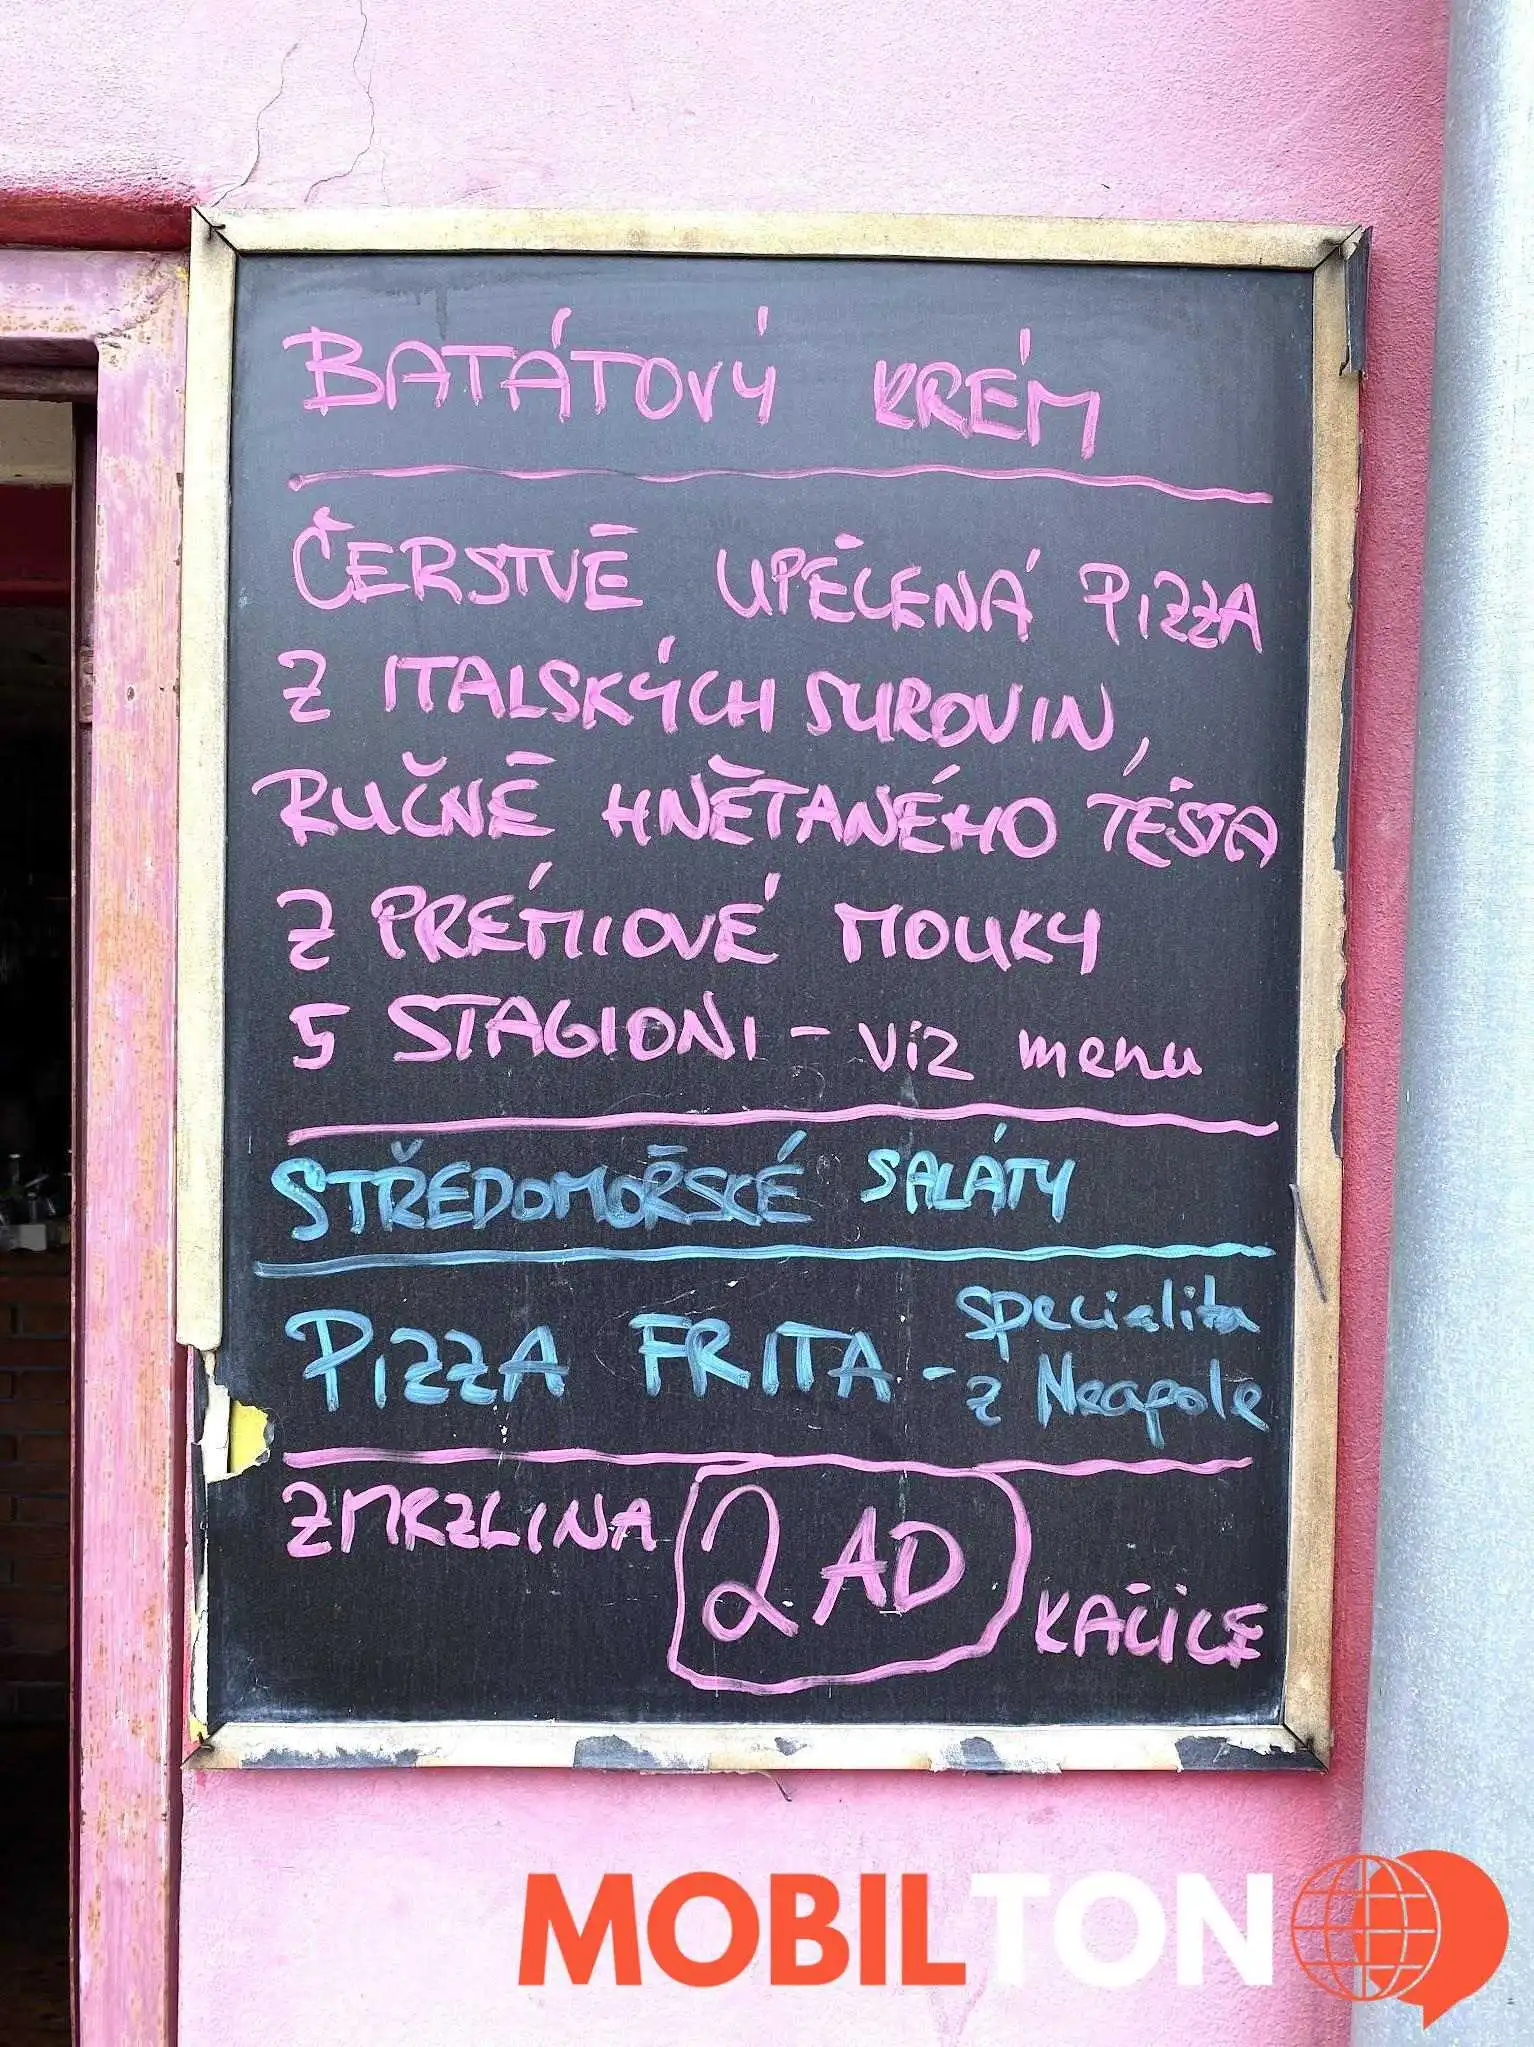 BATÁTOVÝ KRÉM
ČERSTVĚ UPEČENÁ PIZZA
Z ITALSKÝCH SUROVIN,
RUČNĚ HNĚTANÉHO TĚSTA
Z PRÉMIOVÉ MOUKY
5 STAGIONI - viz menu
STŘEDOMOŘSKÉ SALÁTY
PIZZA FRITA - specialita
z Neapole
ZMRZLINA 2 AD KAČICE
MOBILTON